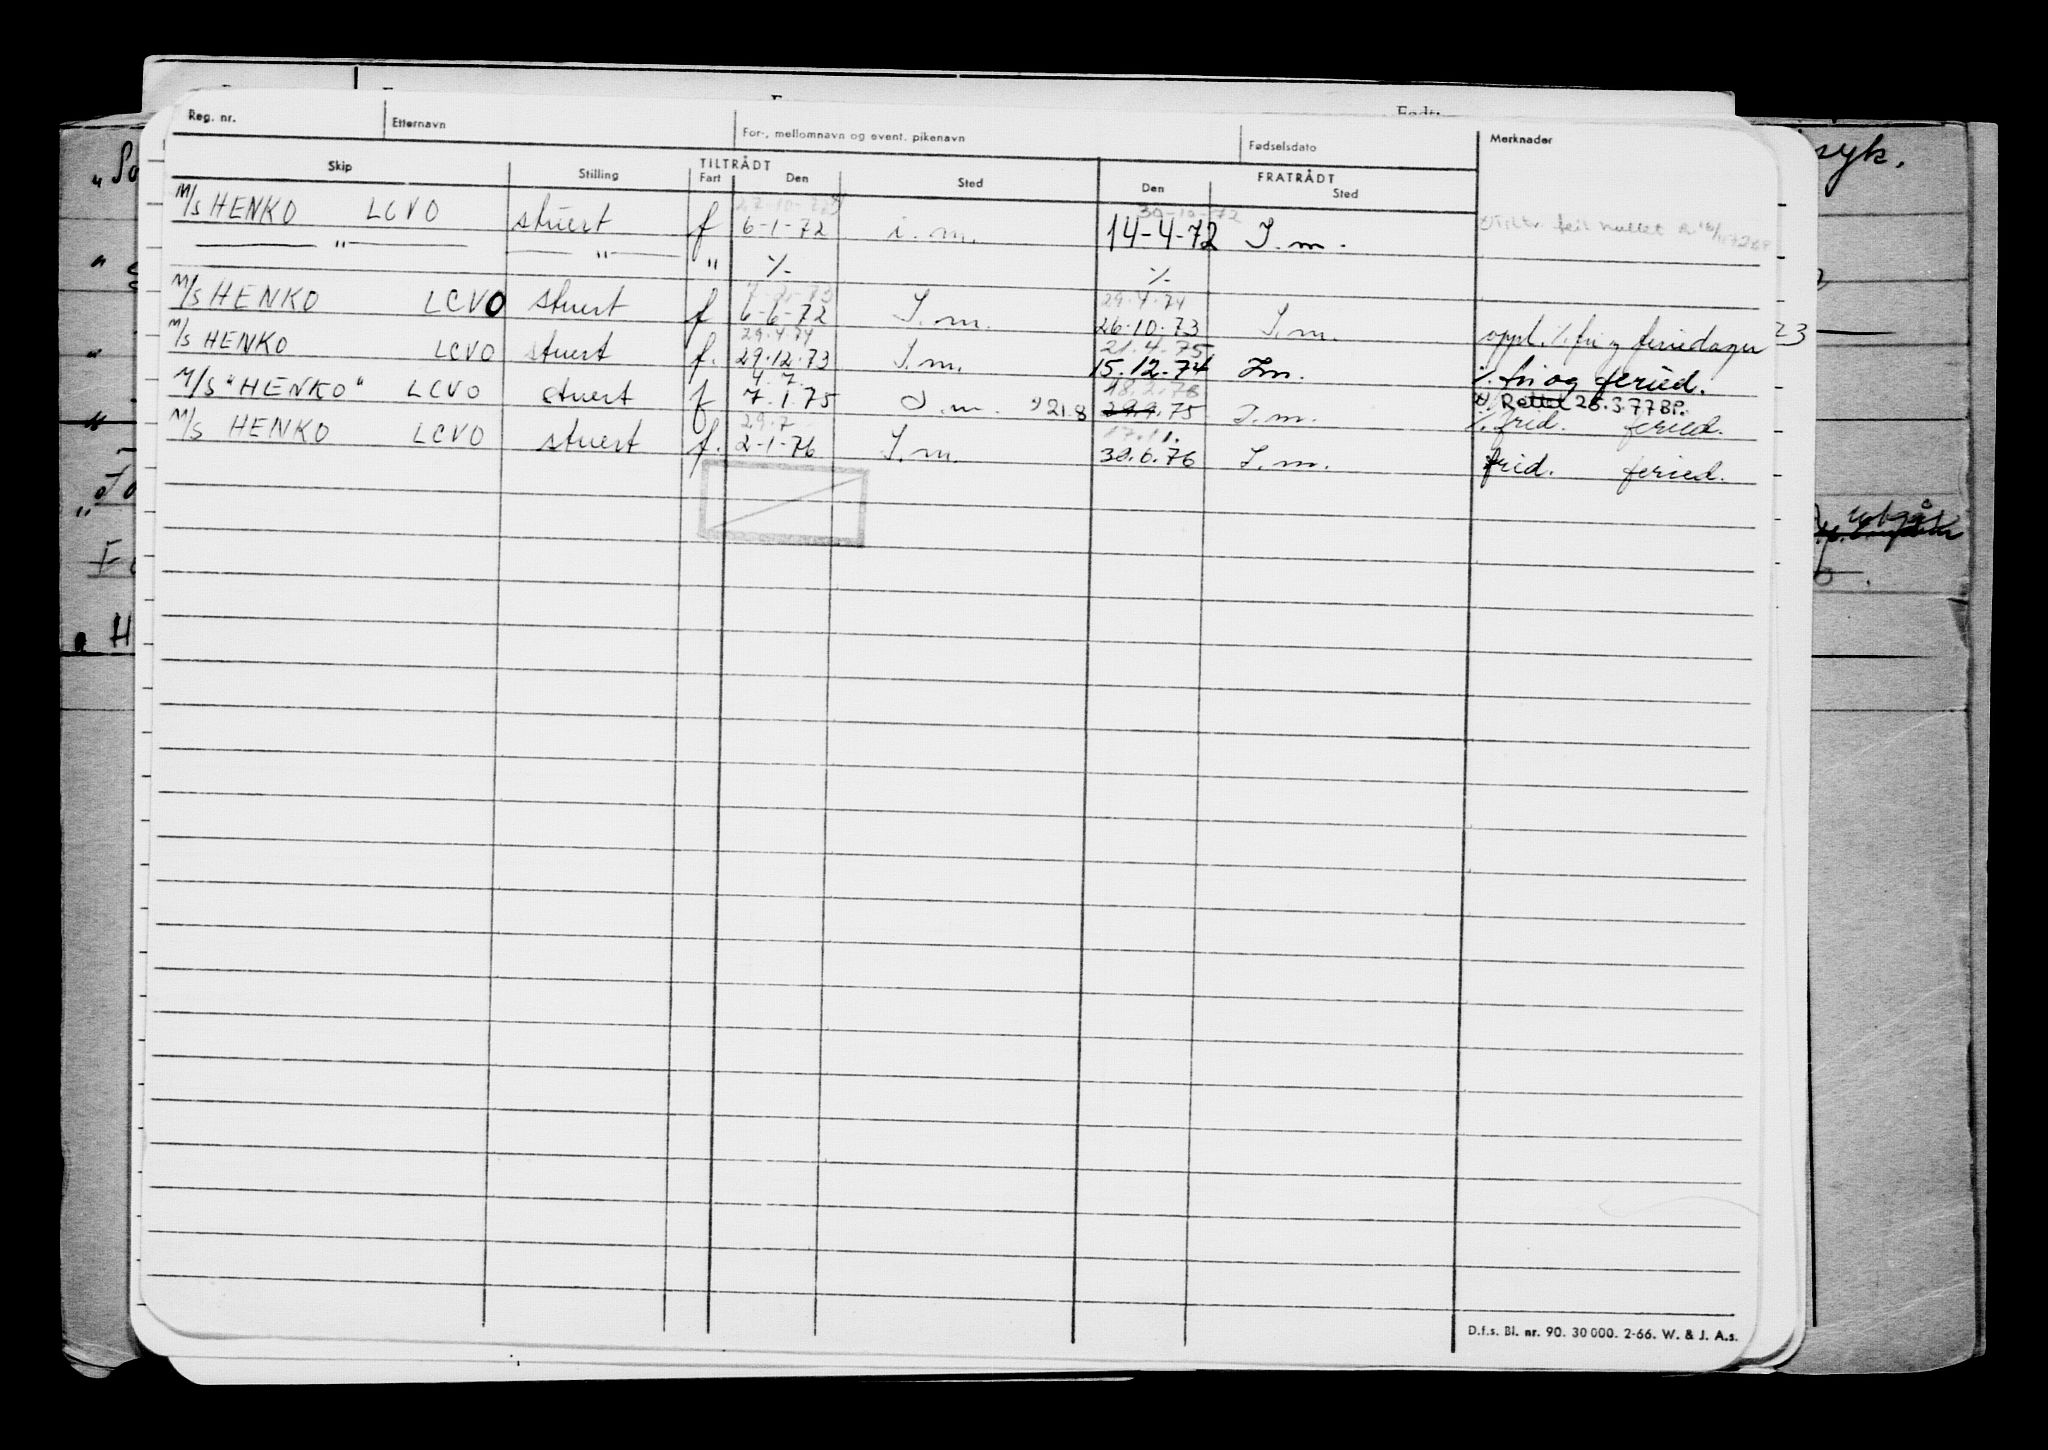 Reg. nr. Etternavn For-, mellomnavn og event. pikenavn Fødselsdato Merknader
TILTRÅDT FRATRÅDT
Skip Stilling Fart Den Sted Den Sted
30-10-72
M/S HENKO LCVO stuert f 6-1-72 i.m. 14-4-72 I.m.
" " " ./. ./.
29.4.74
M/S HENKO LCVO stuert f 6-6-72 I.m. 26.10.73 I.m. oppl. ./. fri og feriedager
29.4.74 21.4.75
M/S HENKO LCVO stuert f. 29.12.73 I.m. 15.12.74 Im. ./. fri og feried.
4.7. 18.2.76 Rettet 25.3.77 BP.
M/S "HENKO" LCVO stuert f 7.1.75 I.m. 21.8 29.9.75 I.m. ./. frid. feried.
29.7 17.11.
M/S HENKO LCVO stuert f. 2-1-76 I.m. 30.6.76 I.m. frid. feried.
syk.
23
D.f.s. Bl. nr. 90. 30 000. 2-66. W. & J. A.s.